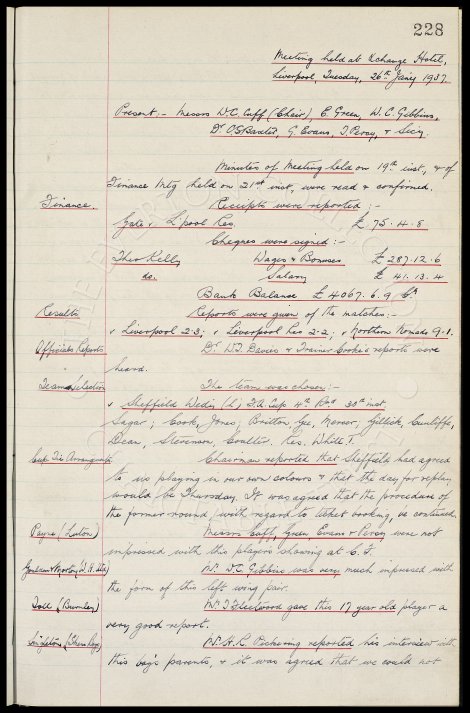 228
Meeting held at Xchange Hotel,
Liverpool, Tuesday, 26th Jany 1937.
Present:- Messrs W.C. Cuff (Chair), E. Green, W.C. Gibbins,
Dr C.S. Baxter, G. Evans, J. Percy, & Secy.
Minutes of Meeting held on 19th inst, & of
Finance Mtg held on 21st inst, were read & confirmed.
Finance. Receipts were reported:-
Gate v. L'pool Res £ 75. 4. 8
Cheques were signed:-
Theo Kelly Wages & Bonuses £ 287. 12. 6
do. Salary £ 41. 13. 4
Bank Balance £ 4067. 6. 9
Results Reports were given of the matches:-
v Liverpool 2-3; v Liverpool Res 2-2; v Northern Nomads 9-1.
Officials Reports Dr. W.J. Davies & Trainer Cooke's reports were
heard.
Team Selection The team was chosen:-
v Sheffield Wedn (h) F.A. Cup 4th Rnd 30th inst.
Sagar; Cook, Jones; Britton, Gee, Mercer; Gillick, Cunliffe,
Dean, Stevenson, Coulter. Res. White T.
Cup Tie Arrangements Chairman reported that Sheffield had agreed
to us playing in our own colours & that the day for replay
would be Thursday. It was agreed that the procedure of
the former round, with regard to ticket booking, be continued.
Payne (Luton) Messrs Cuff, Green Evans & Percy were not
impressed with this players showing at C.F.
Mr. W.C. Gibbins was very much impressed with
the form of this left wing pair.
(Burnley) Mr J Fleetwood gave this 17 year old player a
very good report.
Mr. H.R. Pickering reported his interview with
this boy's parents, & it was agreed that we could not